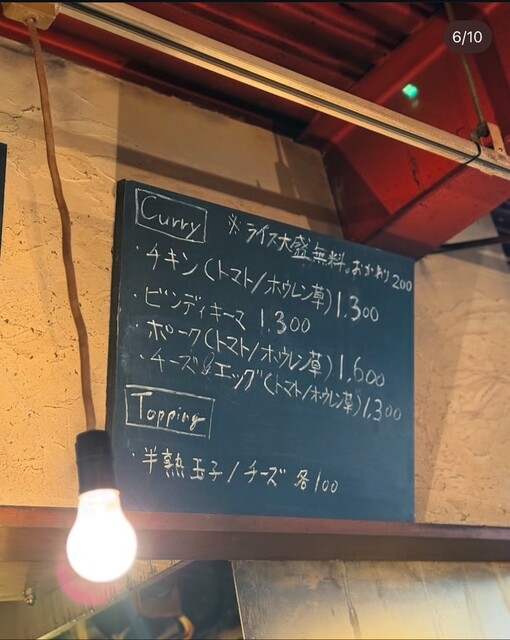 6/10
Curry
※ライス大盛無料。おかわり200
・チキン(トマト/ホウレン草)1.300
・ビンディキーマ 1.300
・ポーク(トマト/ホウレン草)1.600
・チーズ&エッグ(トマト/ホウレン草)1.300
Topping
・半熟玉子/チーズ 各100